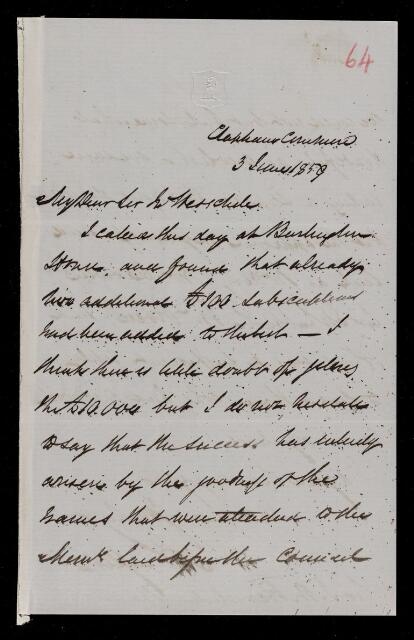 64
Clapham Common
3 June 1859
My Dear Sir J. Herschel
I called this day at Burlington
House, and found that already
two additional £100 subscriptions
had been added to the list — I
think there is little doubt of
the £10,000 but I do not hesitate
to say that the success has entirely
arisen by the goodness of the
names that were attached to the
Meml. laid before the Council